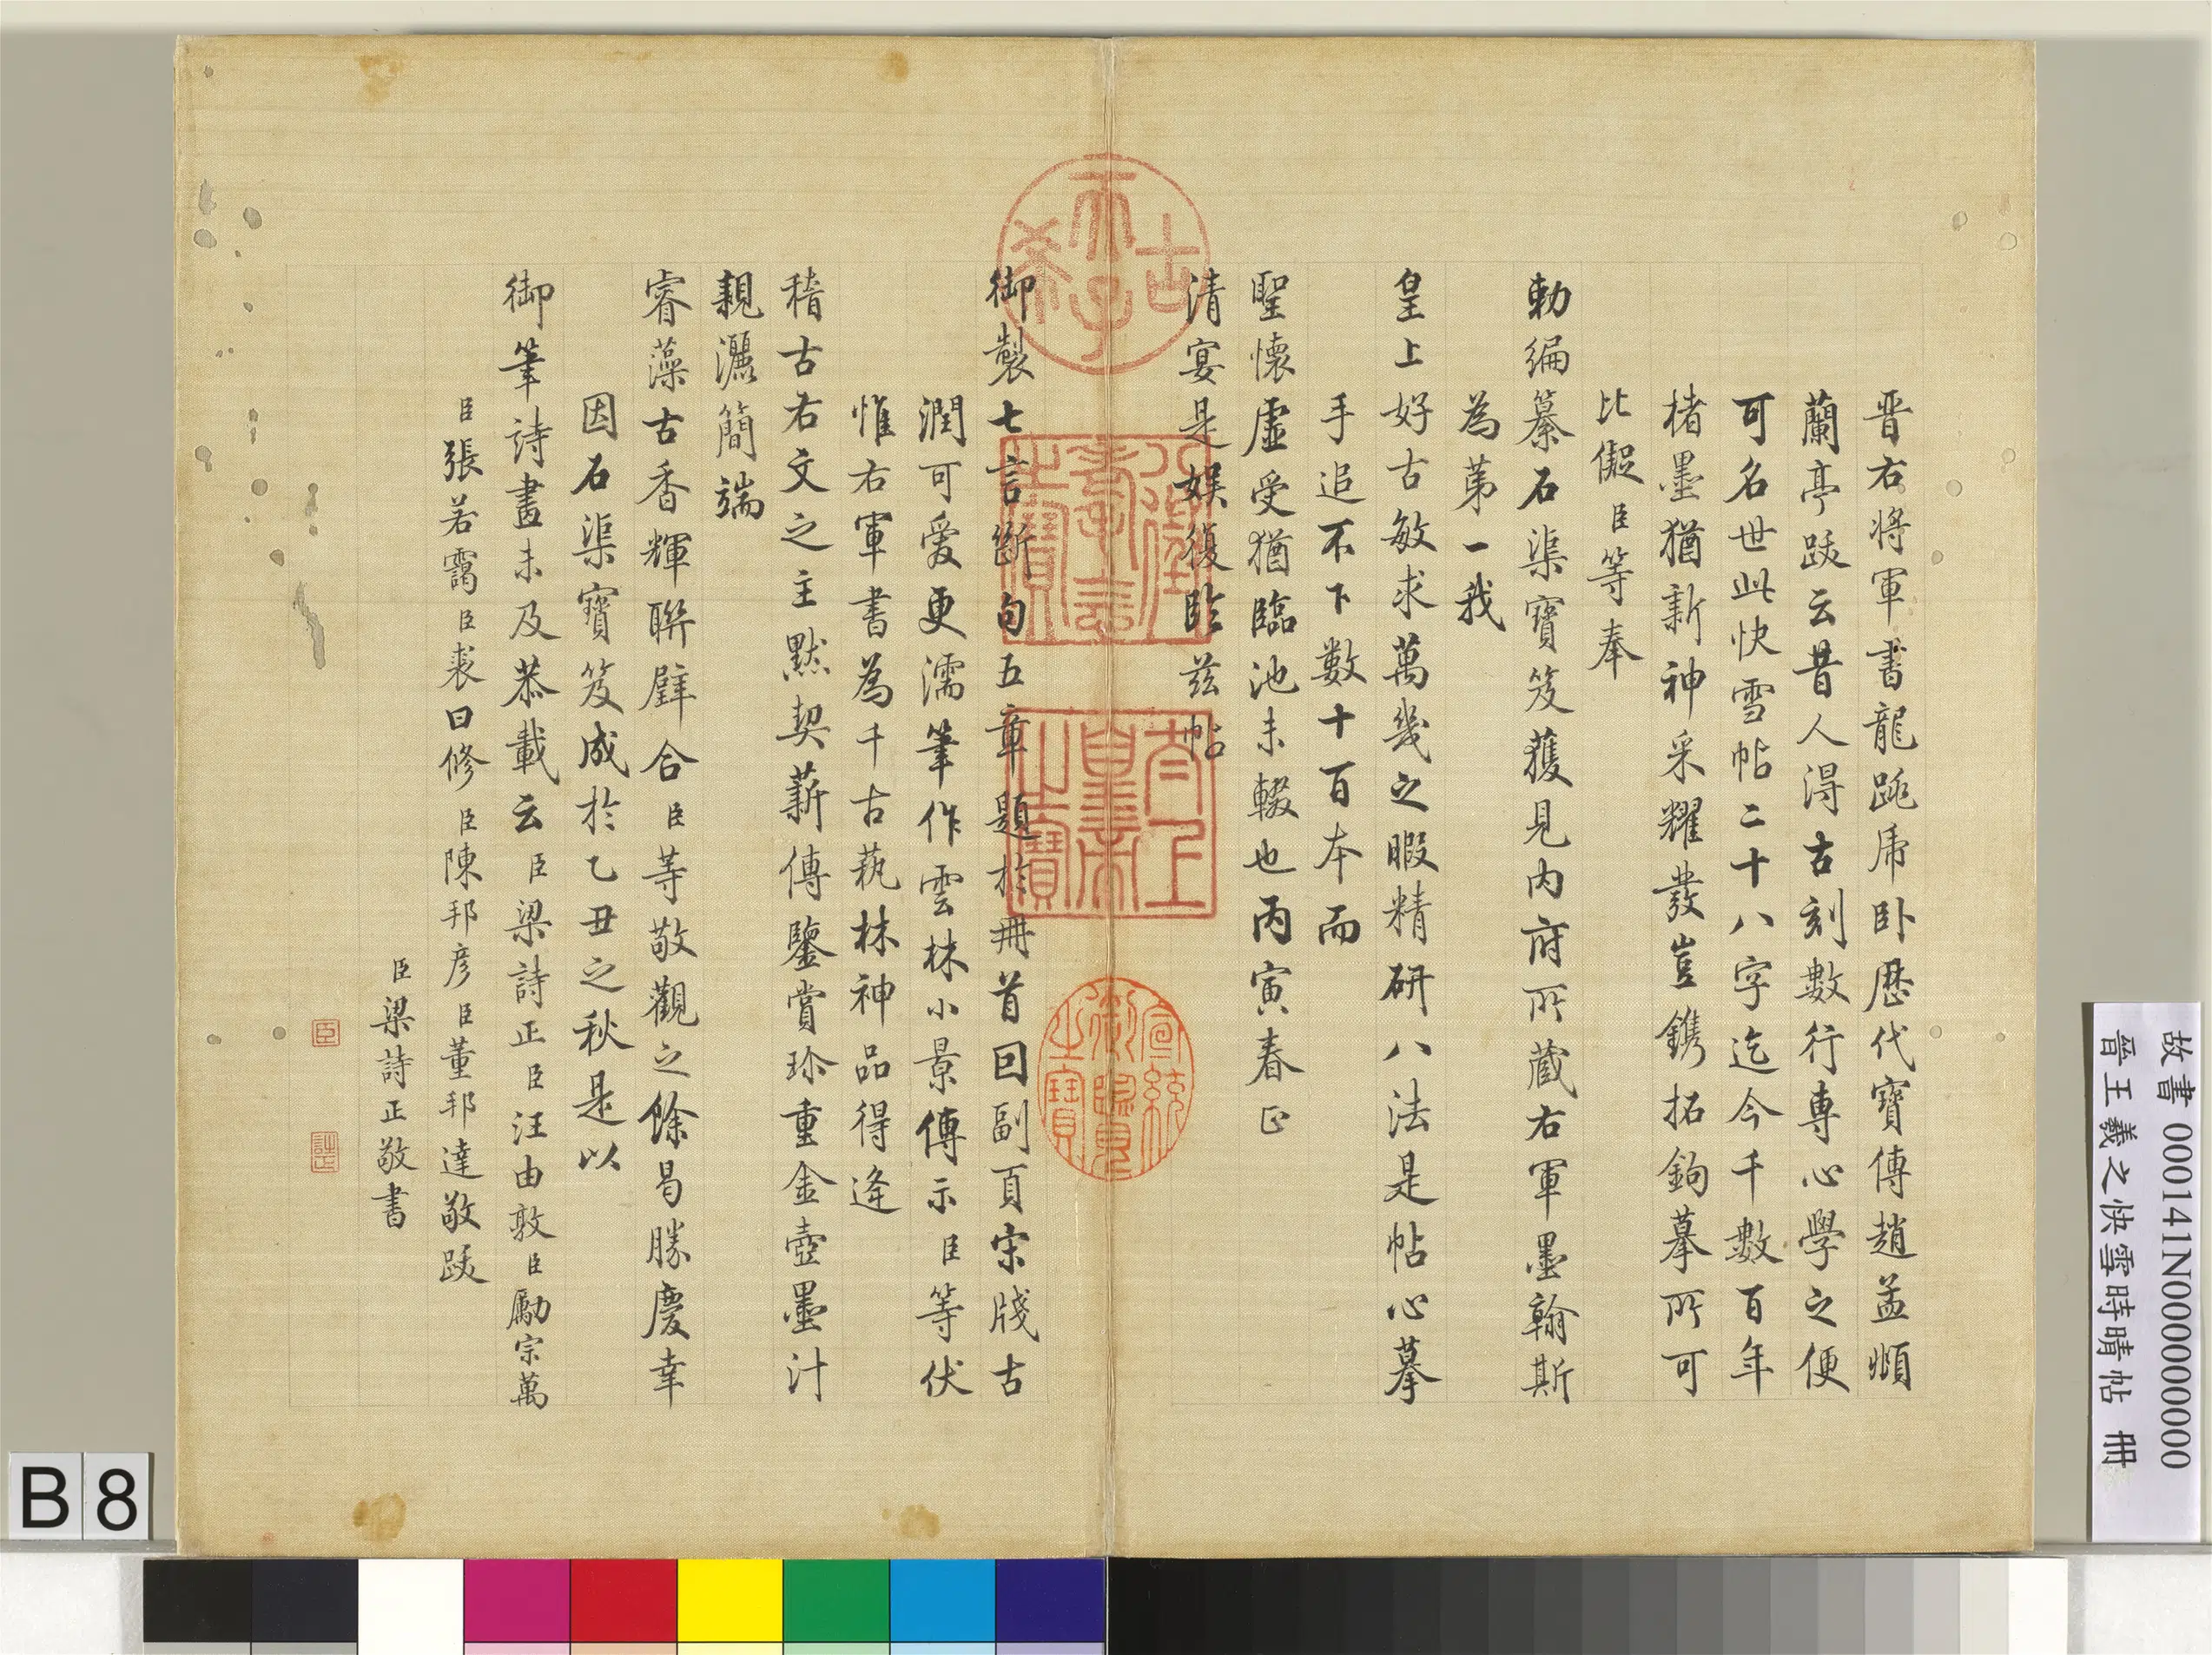 晉右將軍書龍跳虎卧歷代寶傳趙孟頫
蘭亭跋云昔人得古刻數行專心學之便
可名世此快雪帖二十八字迄今千數百年
楮墨猶新神采耀發豈鐫拓鉤摹所可
比儗臣等奉
勅編纂石渠寶笈獲見內府所藏右軍墨翰斯
為第一我
皇上好古敏求萬幾之暇精研八法是帖心摹
手追不下數十百本而
聖懷虛受猶臨池未輟也丙寅春正
清宴是娛復臨茲帖
御製七言斷句五章題於冊首回副頁宋牋古
潤可愛更濡筆作雲林小景傳示臣等伏
惟右軍書為千古蓺林神品得逢
稽古右文之主默契薪傳鑒賞珍重金壺墨汁
親灑簡端
睿藻古香輝聯璧合臣等敬觀之餘曷勝慶幸
因石渠寶笈成於乙丑之秋是以
御筆詩畫未及恭載云臣梁詩正臣汪由敦臣勵宗萬
臣張若靄臣裘曰修臣陳邦彥臣董邦達敬跋
臣梁詩正敬書
臣
詩正
古希天子
八徵耄念之寶
太上皇帝之寶
宣統御覽之寶
故書 000141N000000000
晉王羲之快雪時晴帖 冊
B 8